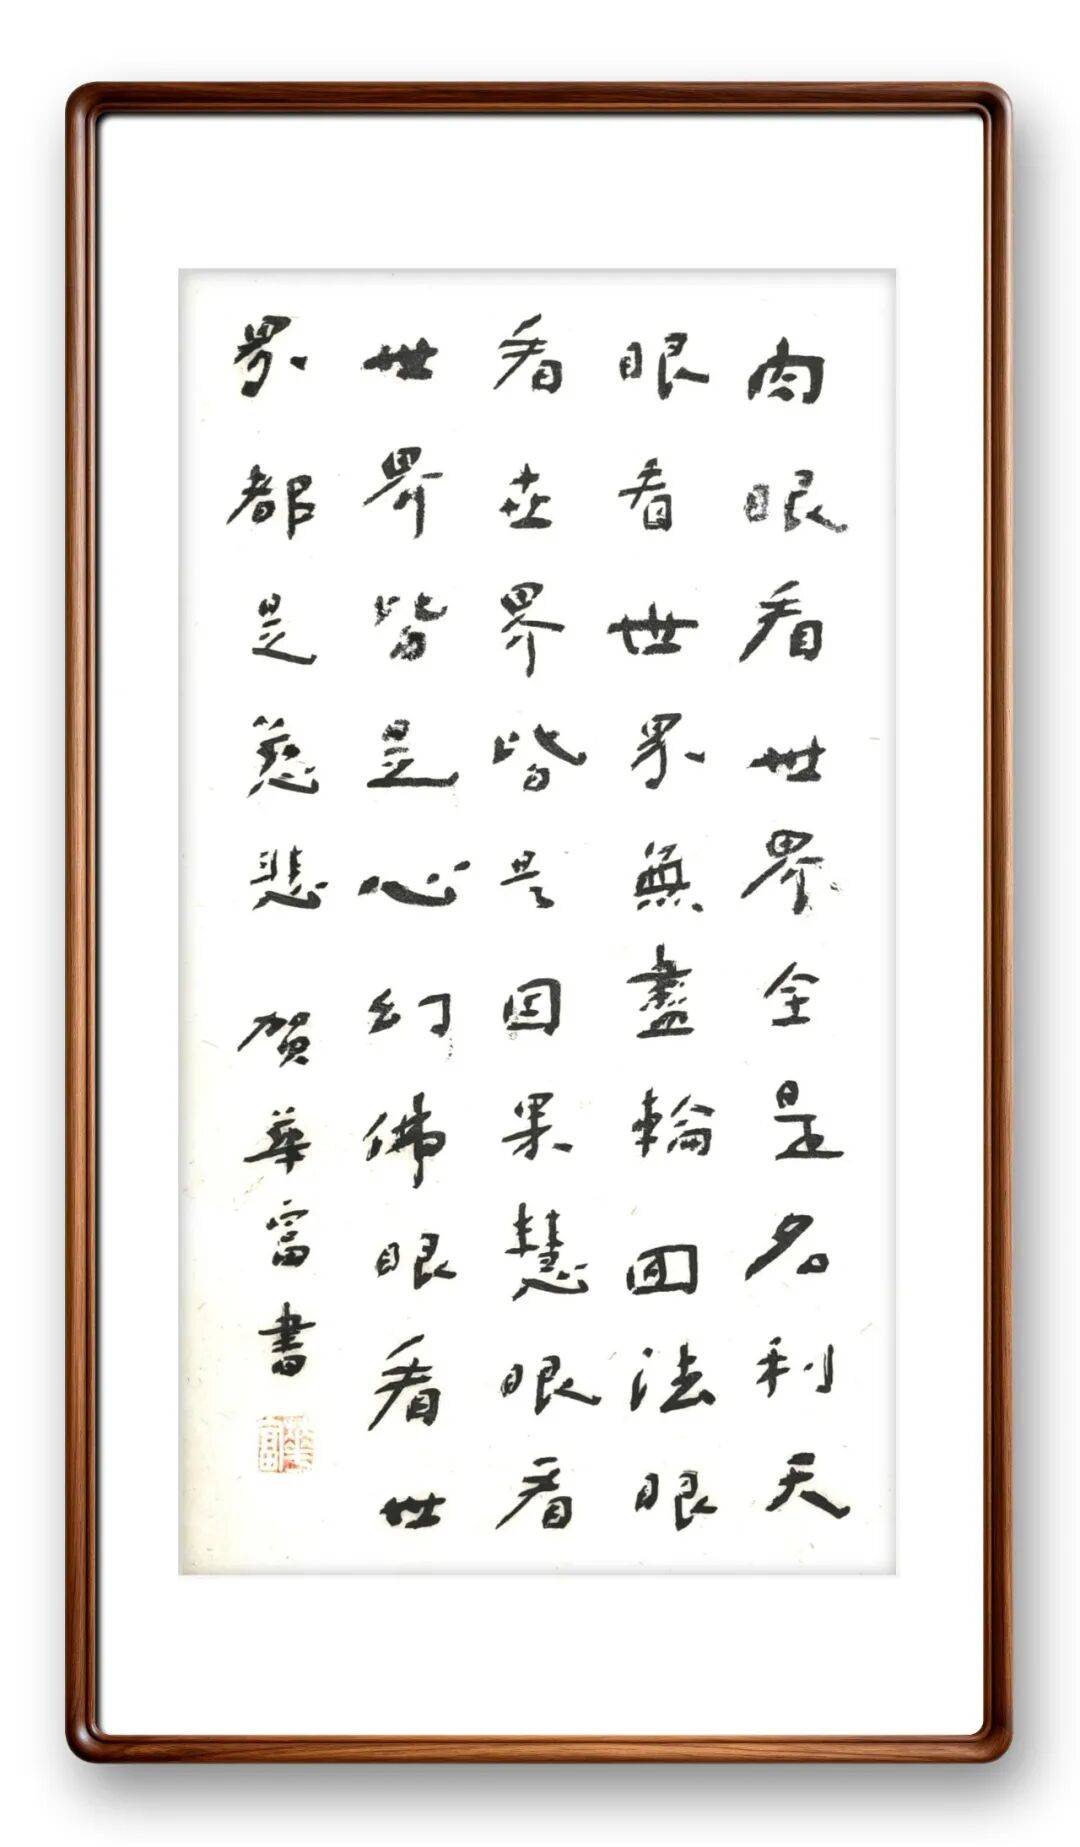 肉眼看世界全是名利天
眼看世界無盡輪回法眼
看世界皆是因果慧眼看
世界皆是心幻佛眼看世
界都是慈悲 賀華富書
華富